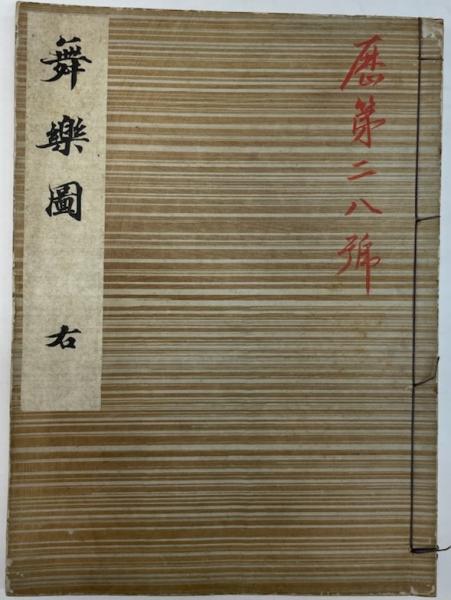 歴第二八號
舞樂圖 右